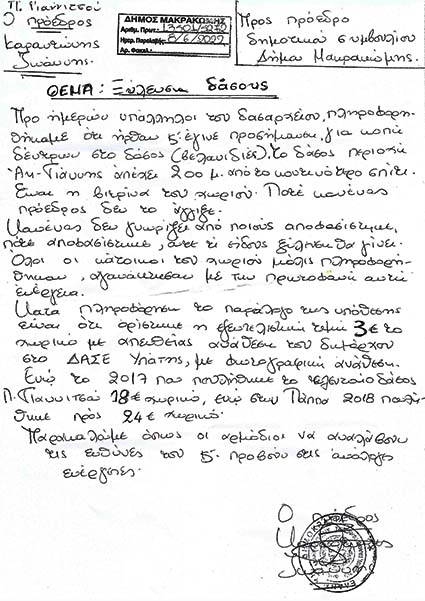 Π. Γιαννιτσού
Ο πρόεδρος
Καραντώνης
Ιωάννης.
ΔΗΜΟΣ ΜΑΚΡΑΚΩΜΗΣ
Αριθμ. Πρωτ.:
Ημερ. Παραλαβής: 8/6/2022
Αρ. Φακελ.:
Προς πρόεδρο
δημοτικού συμβουλίου
Δήμου Μακρακώμης.
ΘΕΜΑ: Ξύλευση δάσους
Προ ημερών υπάλληλοι του δασαρχείου, πληροφορη-
θήκαμε ότι ήρθαν & έγινε προσήμανση, για κοπή
δέντρων στο δάσος (βελανιδιές). το δάσος περιοχή
Αη-Γιάννης απέχει 200 μ. από το κοντινότερο σπίτι.
Είναι η βιτρίνα του χωριού. Ποτέ κανένας
πρόεδρος δεν το άγγιξε.
Κανένας δεν γνωρίζει από ποιούς αποφασίστηκε,
πότε αποφασίστηκε, ούτε τι είδους ξύλευση θα γίνει.
Όλοι οι κάτοικοι του χωριού μόλις πληροφορή-
θηκαν, αγανάκτησαν με την πρωτοφανή αυτή
ενέργεια.
Κατά πληροφόρηση το παράλογο της υπόθεσης
είναι ότι ορίστηκε η εξευτελιστική τιμή 3€ το
χωρικό με απευθείας ανάθεση του δημάρχου
στο ΔΑΣΕ Υπάτης, με φωτογραφική ανάθεση.
Ενώ το 2017 που πουλήθηκε το τελευταίο δάσος
Π. Γιαννιτσού 18€ χωρικό, ενώ στην Πάππα 2018 πουλή-
θηκε προς 24€ χωρικό.
Παρακαλούμε όπως οι αρμόδιοι να αναλάβουν
τις ευθύνες του & προβούν στις ανάλογες
ενέργειες.
Ο πρόεδρος